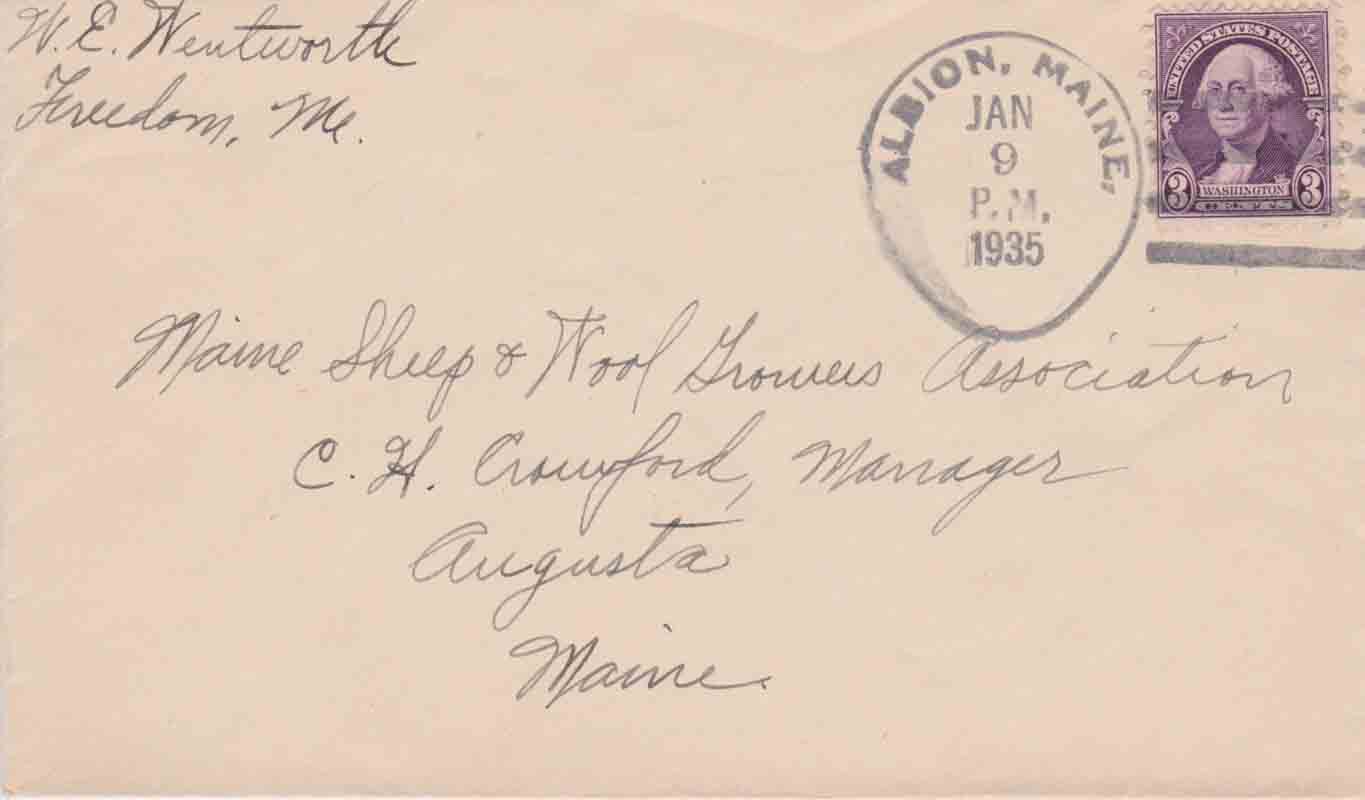 W. E. Wentworth
Freedom, Me.
ALBION, MAINE,
JAN
9
P.M.
1935
UNITED STATES POSTAGE
3 WASHINGTON 3
CENTS
Maine Sheep & Wool Growers Association
C. H. Crawford, Manager
Augusta
Maine.